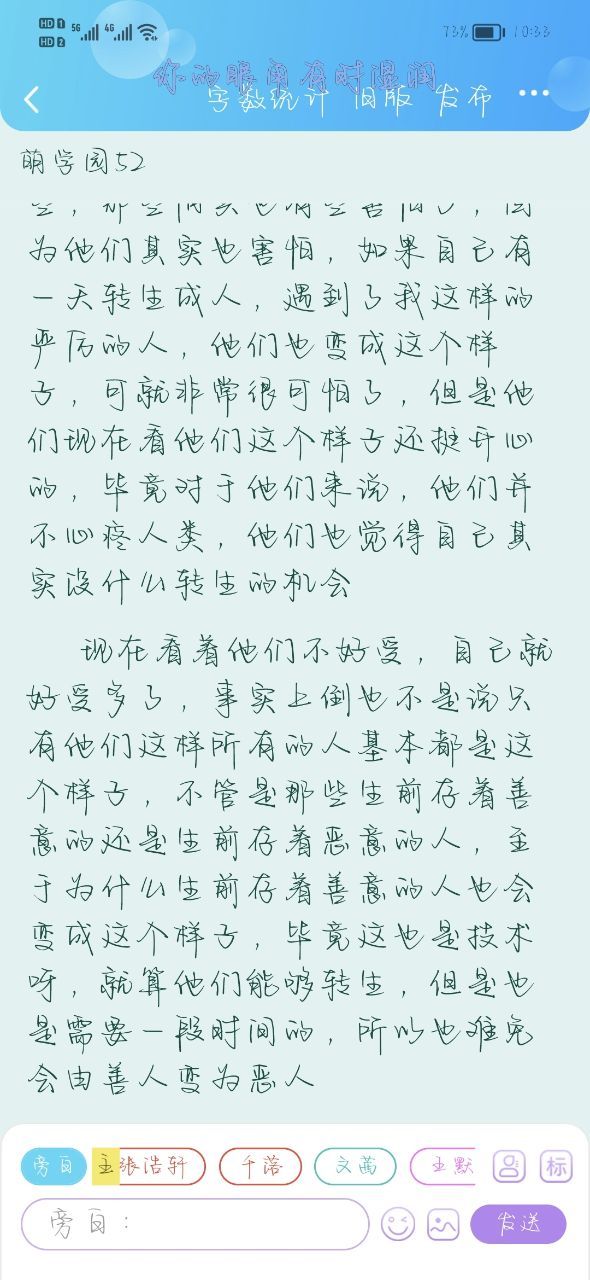 HD 1 5G 4G 73% 10:33
HD 2
你的眼角有时湿润
字数统计 旧版 发布
萌学园52
为他们其实也害怕，如果自己有
一天转生成人，遇到了我这样的
严厉的人，他们也变成这个样
子，可就非常很可怕了，但是他
们现在看他们这个样子还挺开心
的，毕竟对于他们来说，他们并
不心疼人类，他们也觉得自己其
实没什么转生的机会
现在看着他们不好受，自己就
好受多了，事实上倒也不是说只
有他们这样所有的人基本都是这
个样子，不管是那些生前存着善
意的还是生前存着恶意的人，至
于为什么生前存着善意的人也会
变成这个样子，毕竟这也是技术
呀，就算他们能够转生，但是也
是需要一段时间的，所以也难免
会由善人变为恶人
旁白 主 张浩轩 千落 文茜 王默 标
旁白：
发送